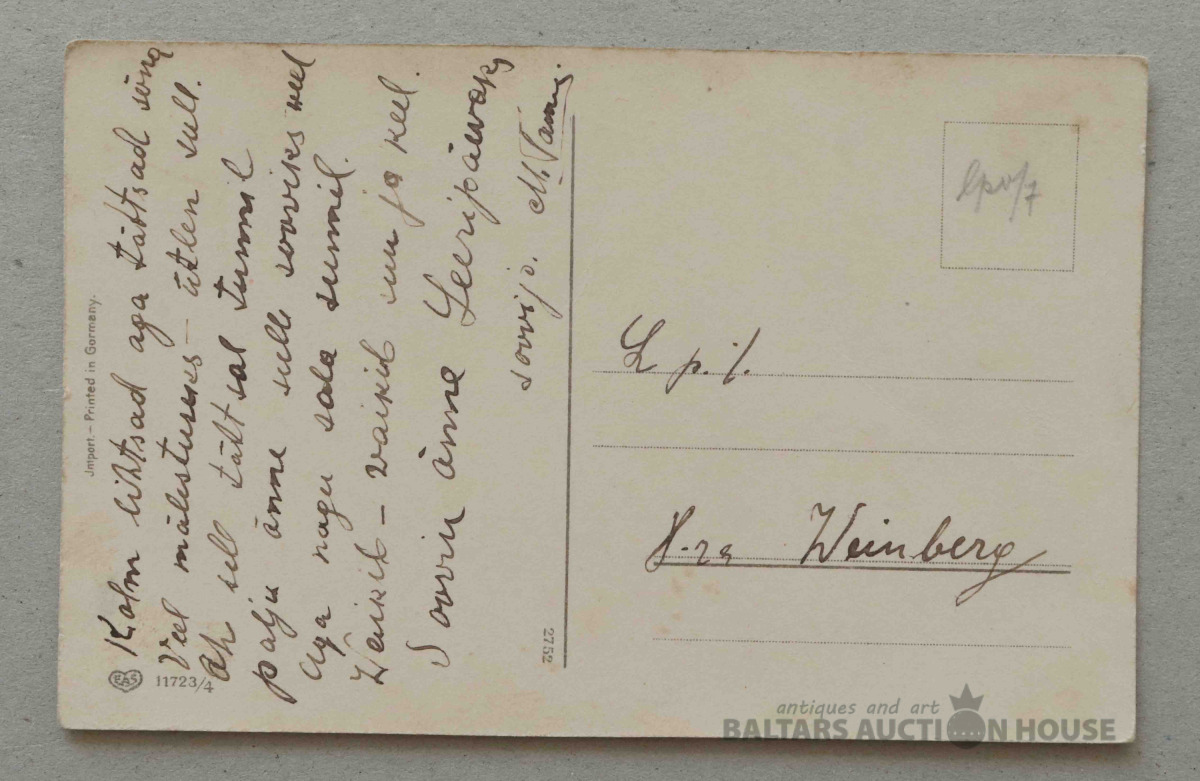 Kolm lihtsad aga tähtsad sõna
Veel mälestuseks – ütlen sull.
Oh sell tähtsal tunnil
palju õnne sulle sooviks veel
Aga nagu sala sunnil
Vaikib – vaikib suu ja keel.
Soovin õnne Leeripäevaks
soovija. M. Tamm.
Jmport. – Printed in Germany.
EAS 11723/4
2752
L p. /.
H-ra Weinberg
antiques and art
BALTARS AUCTION HOUSE